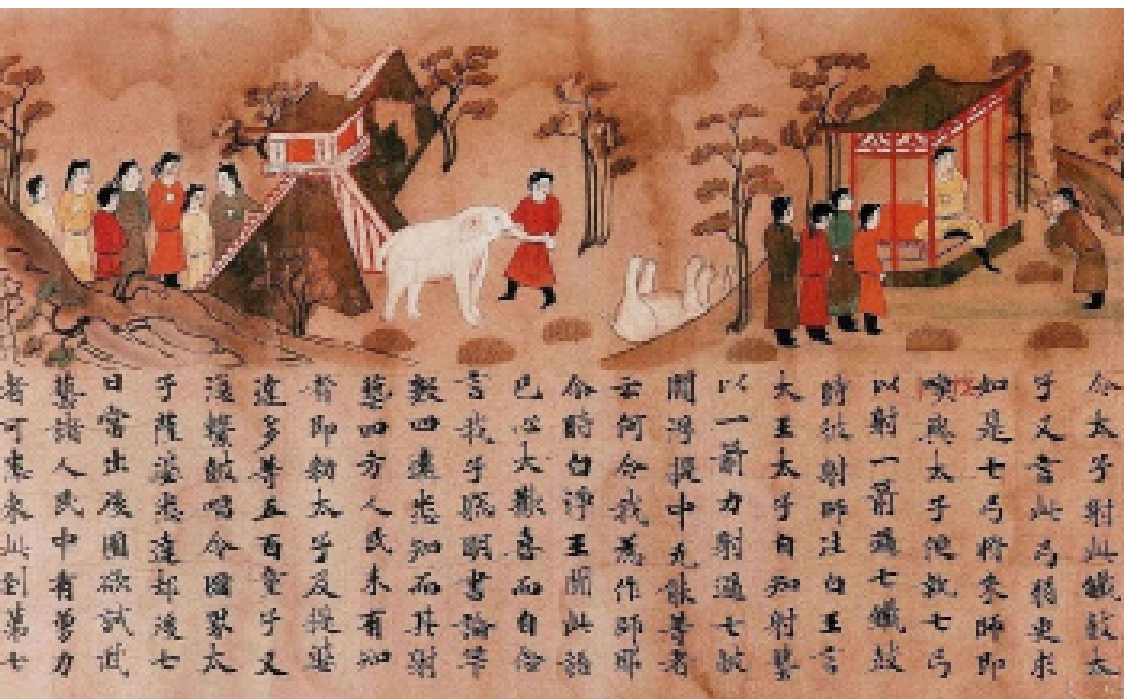 令太子射此鐵鼓太
子又言此弓弱更求
如是七弓將来師即
太子便執七弓
以射一箭過七鐵鼓
時彼射師往白王言
大王太子自知射藝
以一箭力射過七鼓
閻浮提中无能等者
云何令我為作師耶
尒時白淨王聞此語
已心大歡喜而自念
言我子聰明書論筭
數四遠悉知而其射
藝四方人民未有知
者即勅太子及提婆
達多等五百童子又
復擊鼓唱令國界太
子薩婆悉達却後七
日當出後園欲試武
藝諸人民中有勇力
者可悉来此到第七